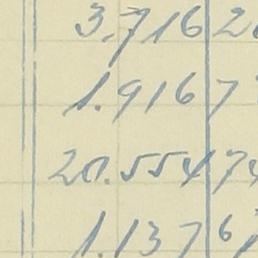 3.716 2
1.916 7
20.554 74
1.137 6